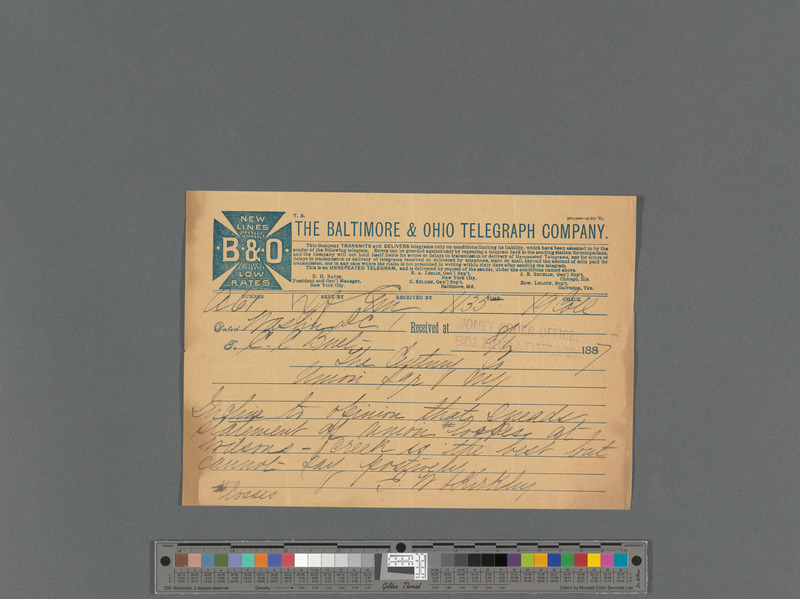 T. B.
500,000--2-27-'85
NEW
LINES
B&O
LOW
RATES
THE BALTIMORE & OHIO TELEGRAPH COMPANY.
This Company TRANSMITS and DELIVERS telegrams only on conditions limiting its liability, which have been assented to by the
sender of the following telegram. Errors can be guarded against only by repeating a telegram back to the sending station for comparison,
and the Company will not hold itself liable for errors or delays in transmission or delivery of Unrepeated Telegrams, nor for errors or
delays in transmission or delivery of telegrams received or delivered by telephone, train or mail, beyond the amount of tolls paid for
transmission, nor in any case where the claim is not presented in writing within sixty days after sending the telegram.
This is an UNREPEATED TELEGRAM, and is delivered by request of the sender, under the conditions named above.
D. H. BATES,
President and Gen'l Manager,
New York City.
New York City.
C. SELDEN, Gen'l Sup't,
Baltimore, Md.
Chicago, Ills.
Galveston, Tex.
NUMBER SENT BY RECEIVED BY TIME CHECK
Dated Washn DC Received at
MONEY ORDER OFFICE,
851 BROADWAY
1887
To C. C. Buel
The Century Co
Union Sqr NY
Incline to opinion that Sneads
statement of Union #losses at
Wilsons - Creek is the best but
cannot say positively
J W Kirkley
#losses
Golden Thread